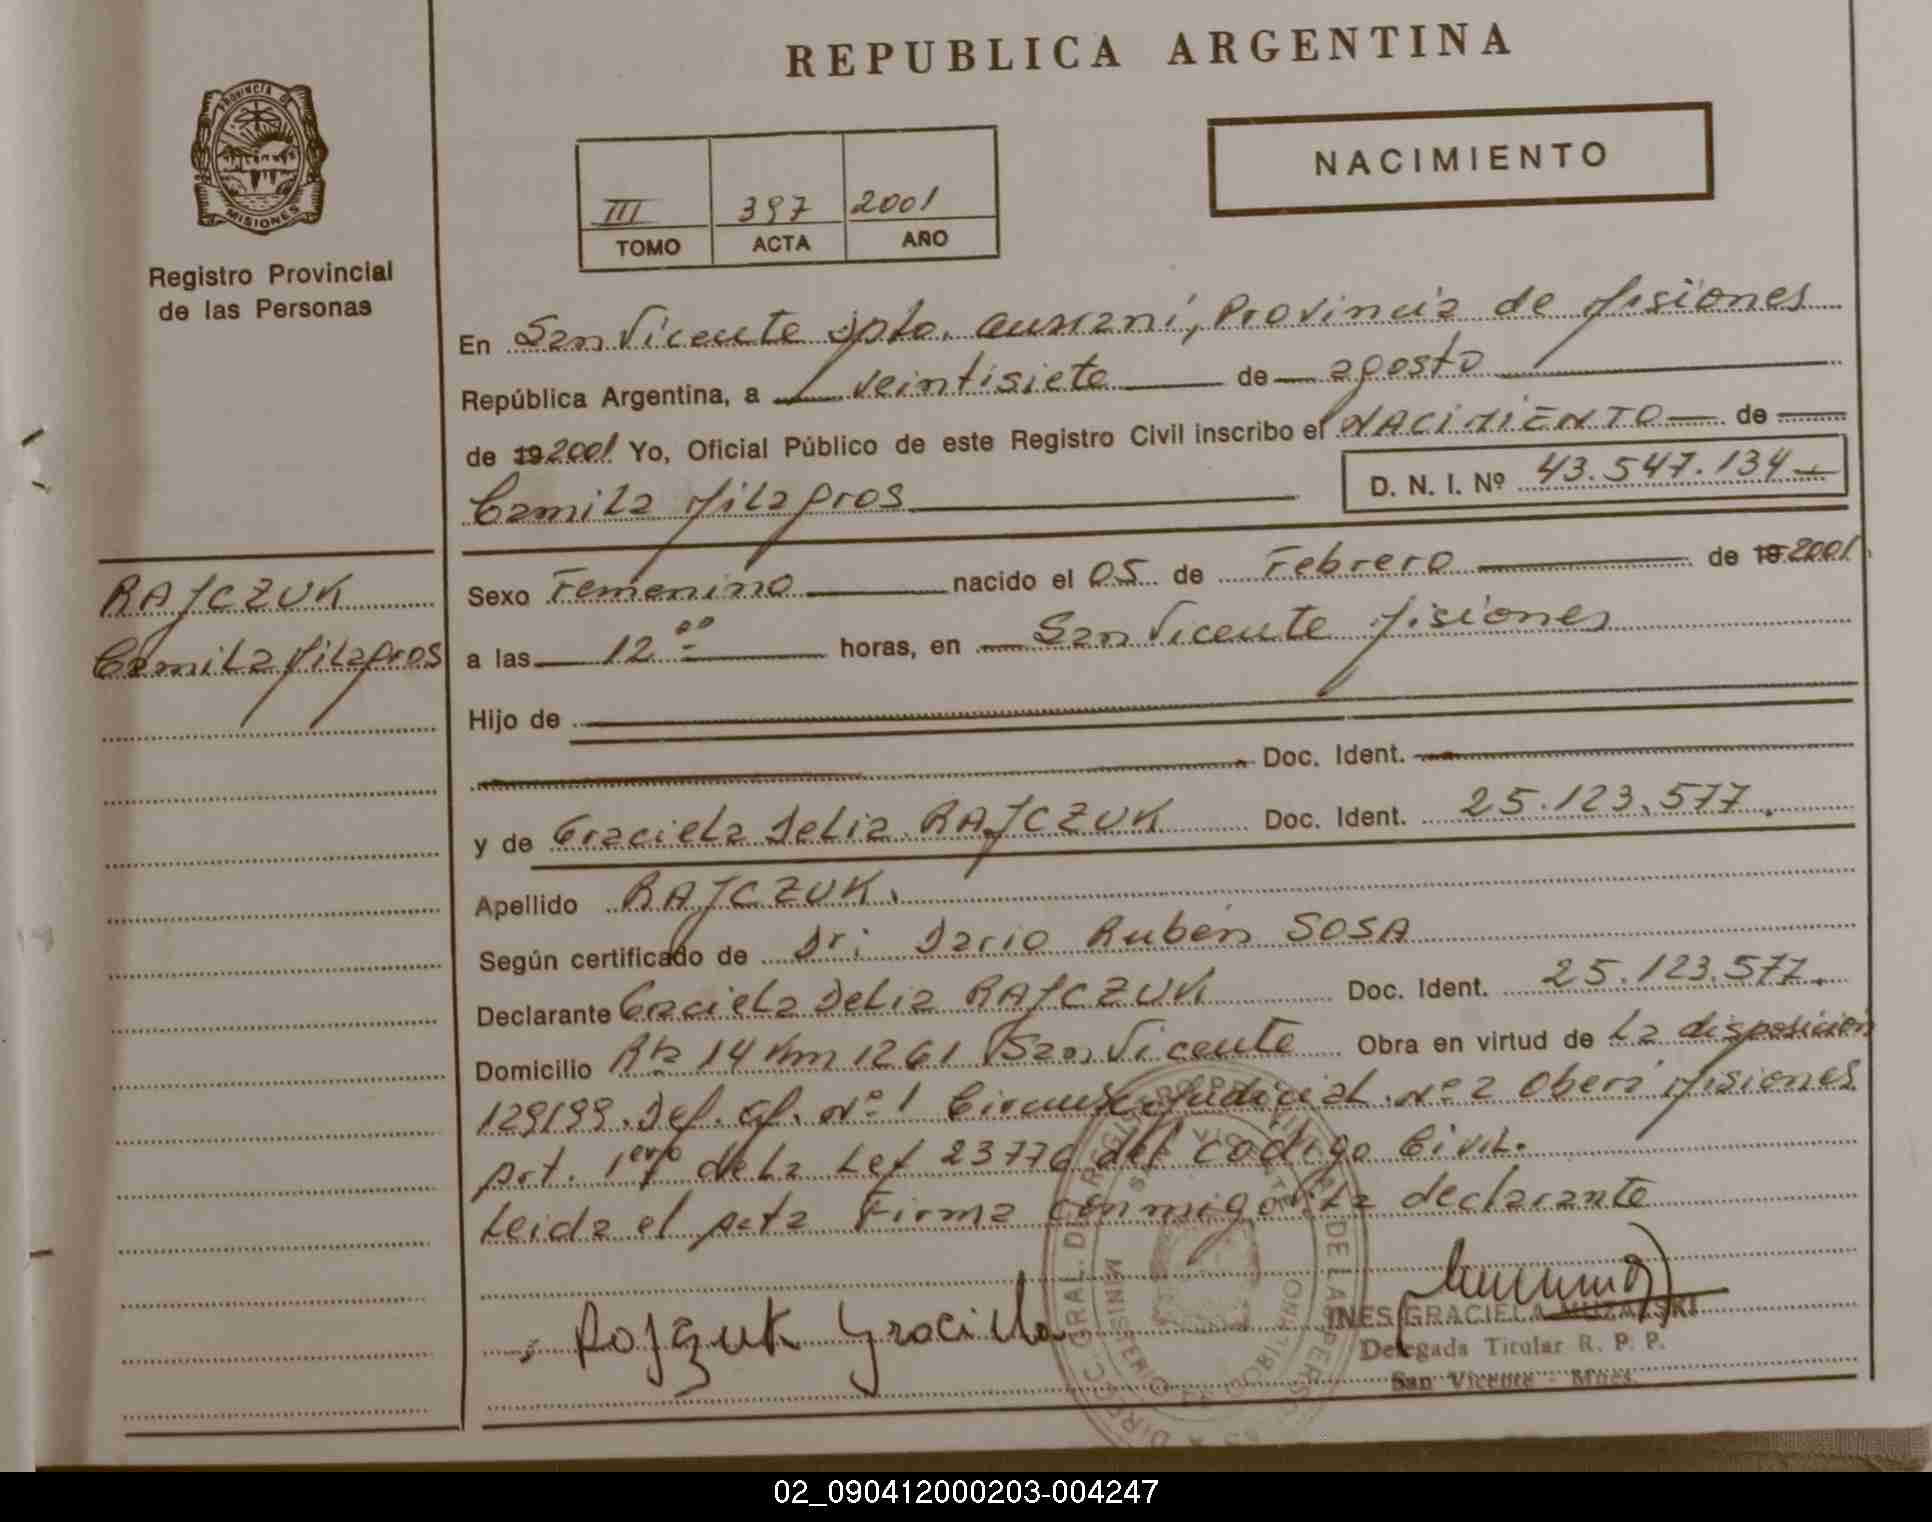 REPUBLICA ARGENTINA
PROVINCIA DE
MISIONES
Registro Provincial
de las Personas
NACIMIENTO
III 397 2001
TOMO ACTA AÑO
En San Vicente Dpto. Guaraní, Provincia de Misiones
República Argentina, a veintisiete de agosto
de 19 2001 Yo, Oficial Público de este Registro Civil inscribo el NACIMIENTO de
Camila Milagros
D. N. I. Nº 43.547.134
RAJCZUK
Camila Milagros
Sexo Femenino nacido el 05 de Febrero de 19 2001
a las 12 00 horas, en San Vicente Misiones
Hijo de
Doc. Ident.
y de Graciela Delia RAJCZUK Doc. Ident. 25.123.577.
Apellido RAJCZUK.
Según certificado de Dr: Dario Rubén SOSA
Declarante Graciela Delia RAJCZUK Doc. Ident. 25.123.577.
Domicilio Rta 14 Km 1261 San Vicente Obra en virtud de La disposición
129199. Def. of. Nº 1 Circuns. Judicial. Nº 2 Oberá Misiones
Art. 1ero de La Ley 23776 del Codigo Civil.
Leida el acta Firma Conmigo La declarante
Rojzuk Graciela
INES GRACIELA MUZALSKI
Delegada Titular R. P. P.
San Vicente - Mnes.
02_090412000203-004247